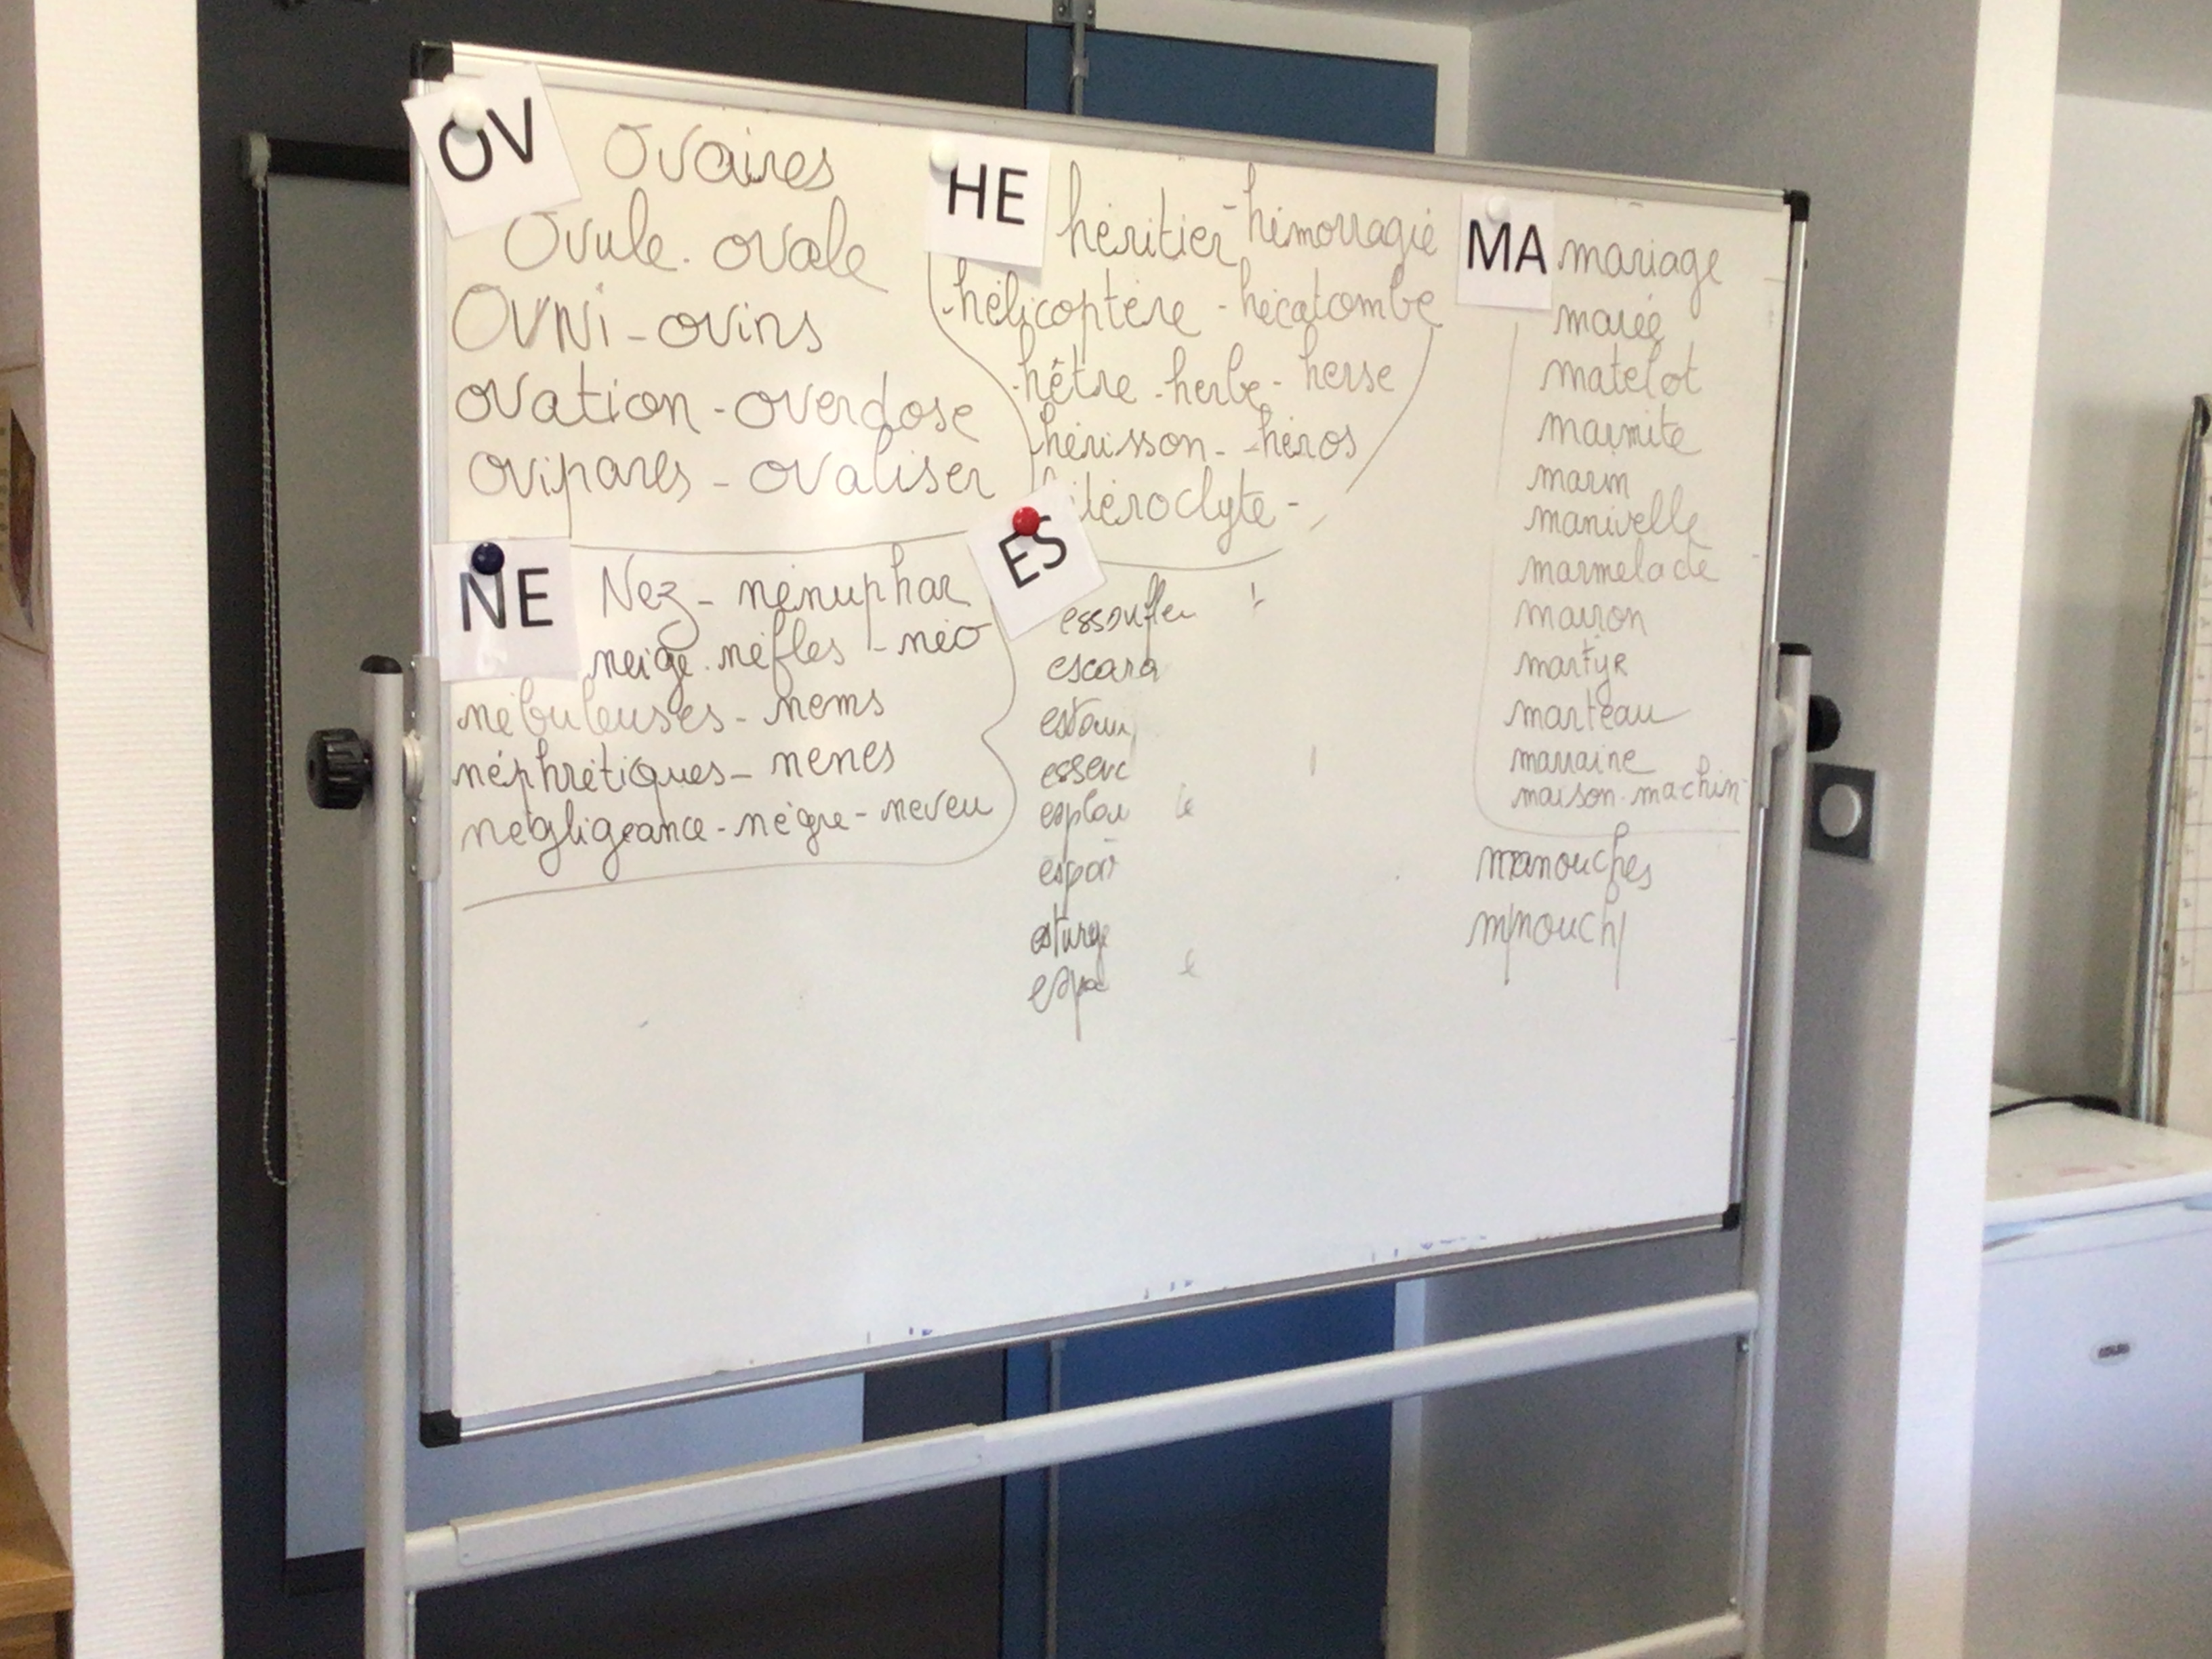 OV
Ovaires
Ovule. ovale
OVNi - ovins
ovation - overdose
ovipares - ovaliser
HE
héritier - hémorragie
- hélicoptère - hécatombe
- hêtre - herbe - herse
- hérisson - - héros
téroclyte -
MA
mariage
marée
matelot
marmite
marin
manivelle
marmelade
marron
martyr
marteau
marraine
maison - machin -
manouches
NE
Nez - nénuphar
neige. néfles - néo
nébuleuses - nems
néphrétiques - nénés
négligeance - nègre - neveu
ES
essouffler
escara
esturge